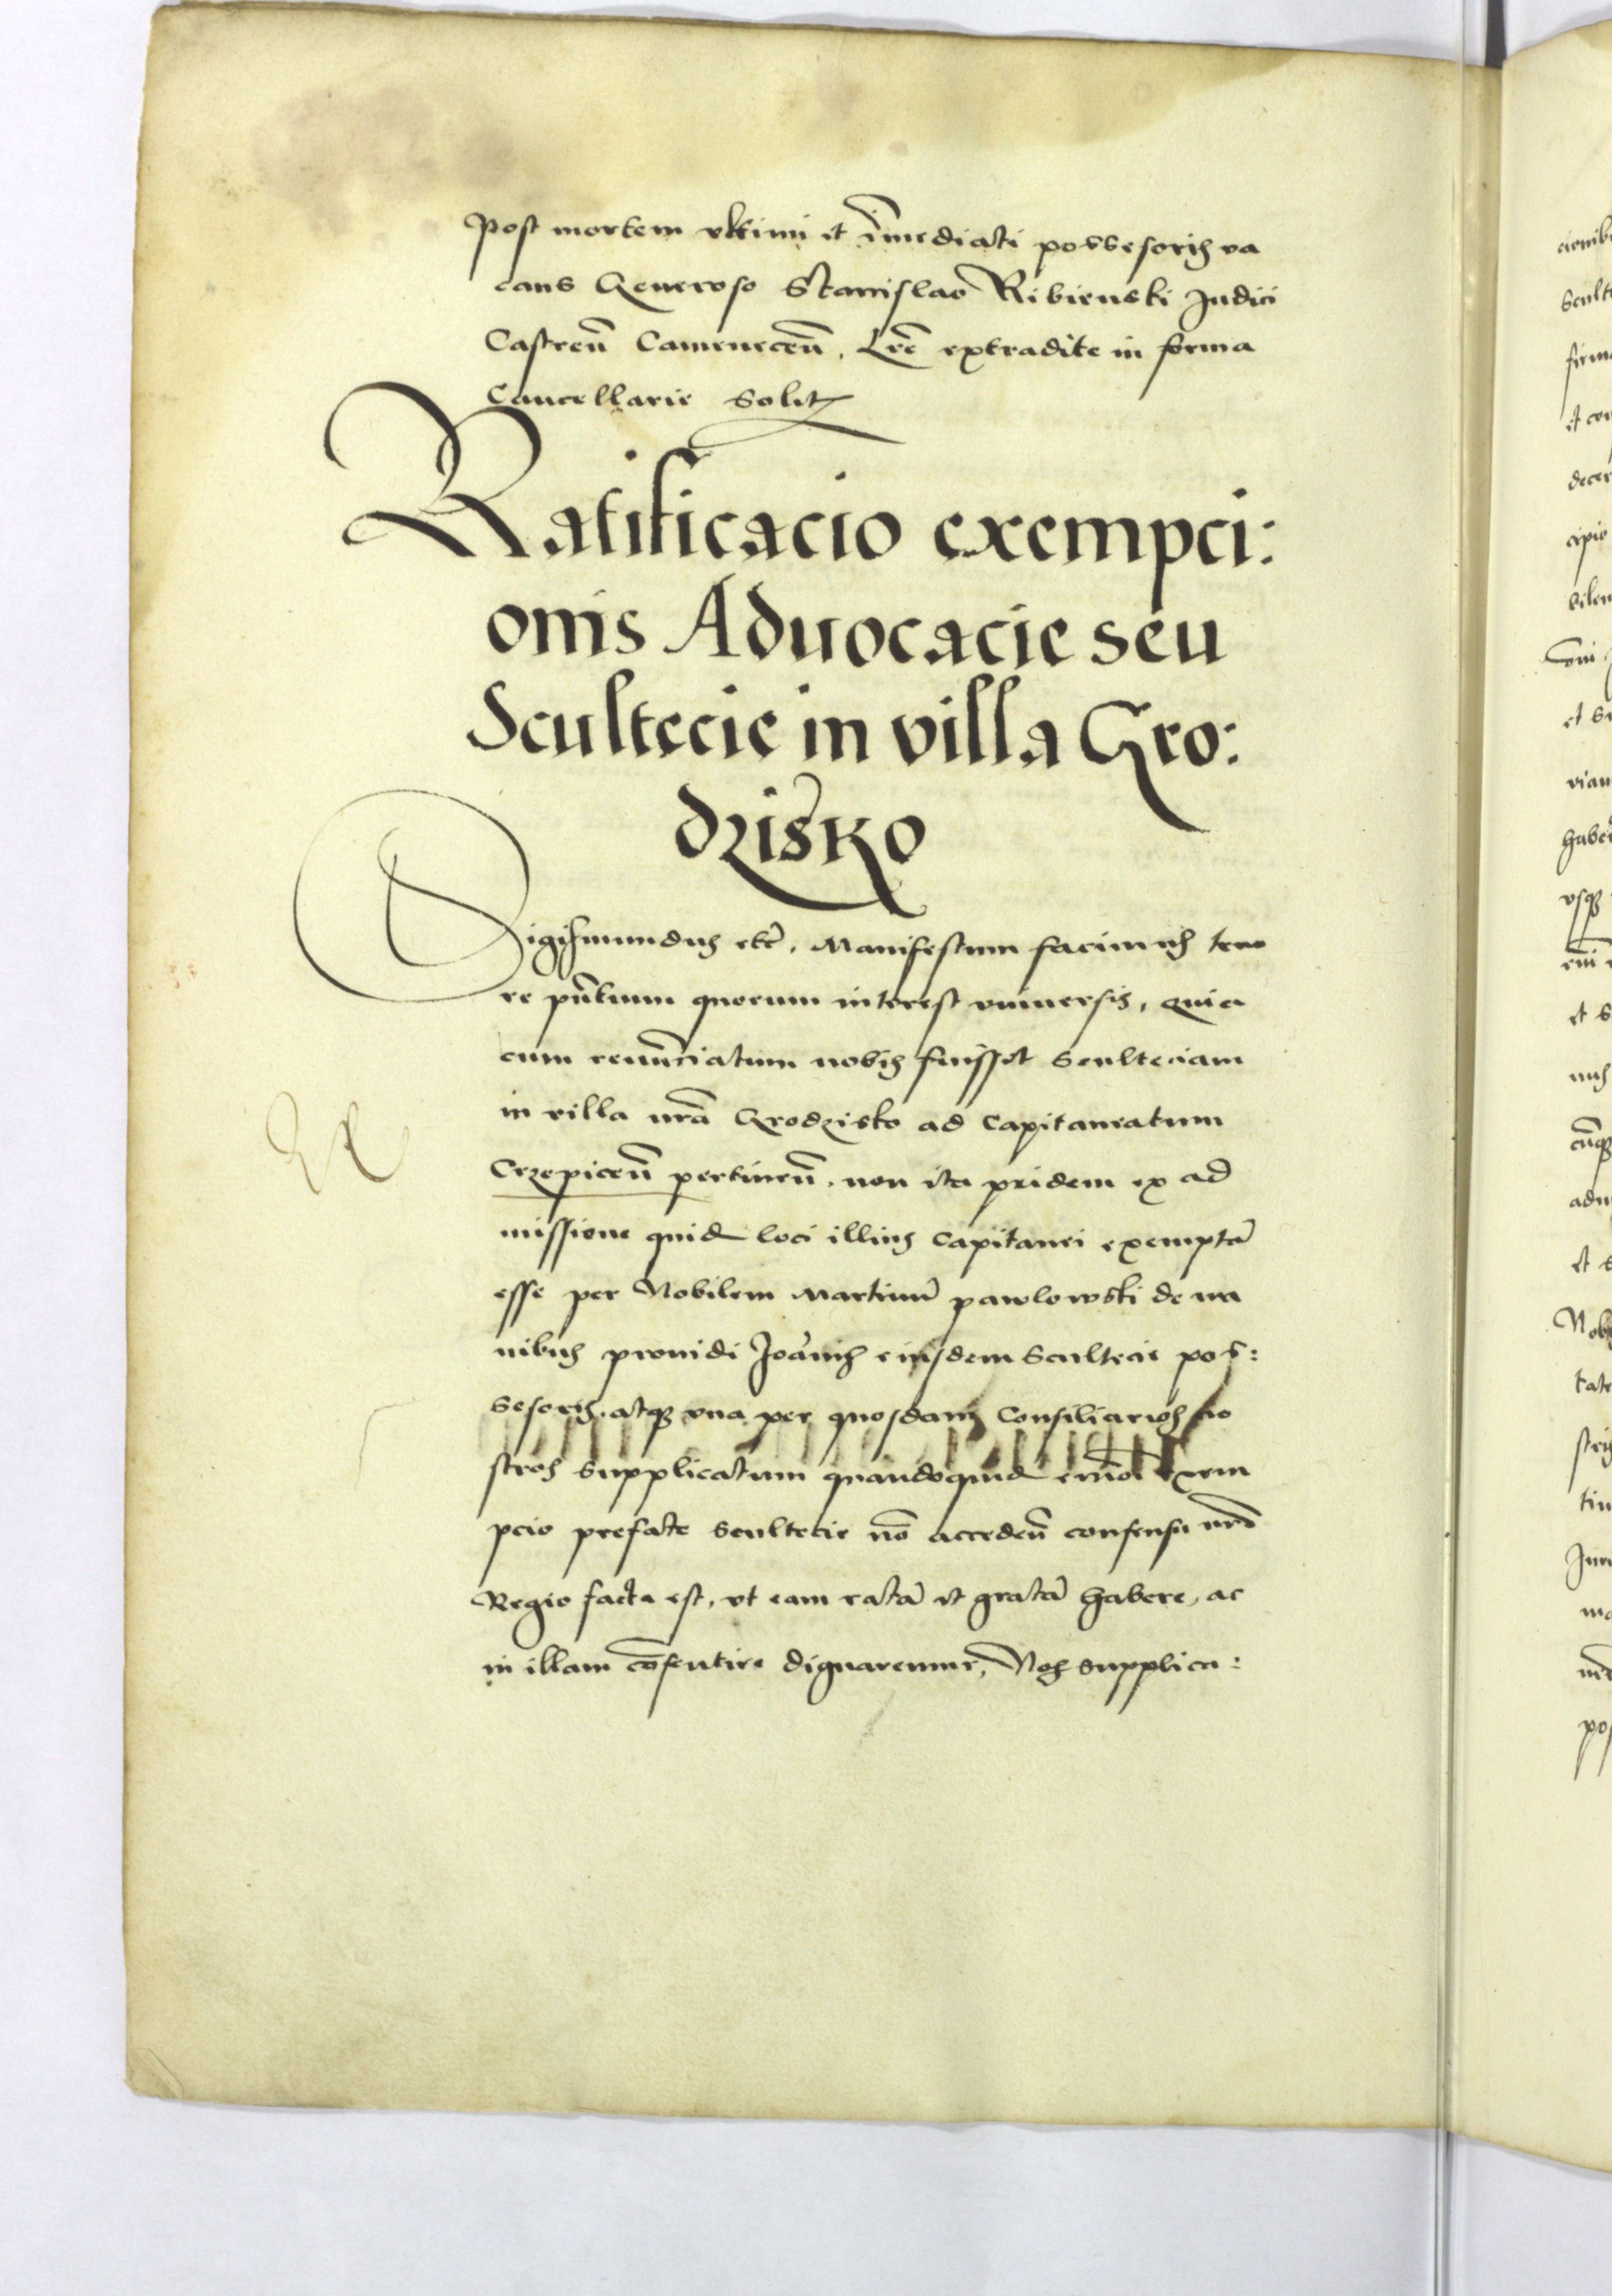 Post mortem vltimi et im̅ediati possesoris va
cans Generoso Stanislao Ribienski Judici
Castren̅ Camenecen̅, Lr̅e extradite in forma
Cancellarie solit
Ratificacio exempci:
onis Aduocacie seu
Scultecie in villa Gro:
dzisko
Sigismundus etc̅. Manifestum facimus teno
re pn̅tium quorum interest vniuersis, Quia
cum renun̅ciatum nobis fuisset Sculteciam
in villa nr̅a Grodzisko ad Capitaneatum
Crzepicen̅ pertinen̅. non ita pridem ex ad
missione quid loci illius Capitanei exempta̅
esse per Nobilem Martinu̅ pawlowski de ma
nibus prouidi Joan̅is eiusdem Scultecie pos:
sesoris. atq3 vna per quosdam Consiliarios no
stros supplicatum quandoquid em̅oi exem
pcio prefate Scultecie no̅ acceden̅ consensu nr̅o
Regio facta est, vt eam rata̅ et grata̅ habere, ac
in illam co̅sentire dignaremur, Nos supplica:
cionib
Sculte
firma
et con
decer
cipio
bilem
et S
vian
habe
vsq3
et S
adu
et S
Nobi
tate
tin
pos